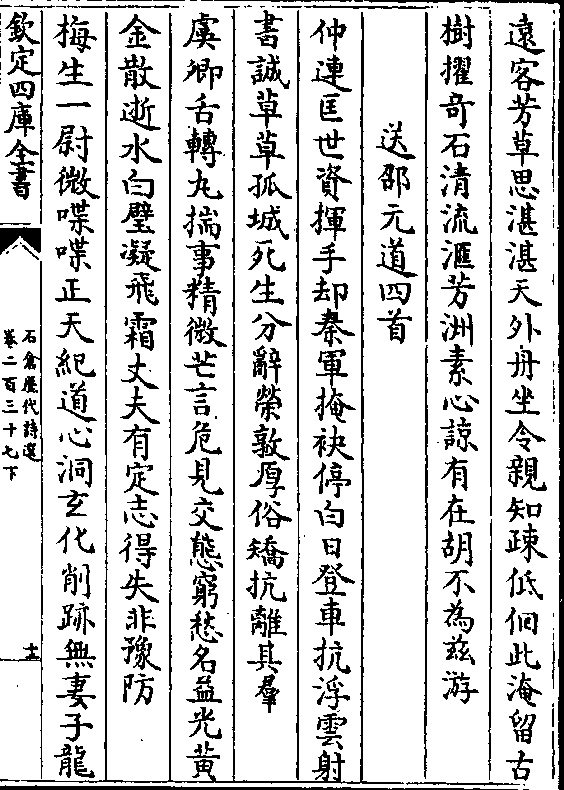 遠客芳草思湛湛天外舟坐令親知踈低佪此淹留古
樹擢奇石清流滙芳洲素心諒有在胡不為茲游
送邵元道四首
仲連匡世資揮手却秦軍掩袂停白日登車抗浮雲射
書誠草草孤城死生分辭榮敦厚俗矯抗離其羣
虞卿舌轉丸揣事精微芒言危見交態窮愁名益光黄
金散逝水白璧凝飛霜丈夫有定志得失非豫防
梅生一尉微喋喋正天紀道心洞玄化削跡無妻子龍
欽定四庫全書
石倉歷代詩選
卷二百三十七下
十